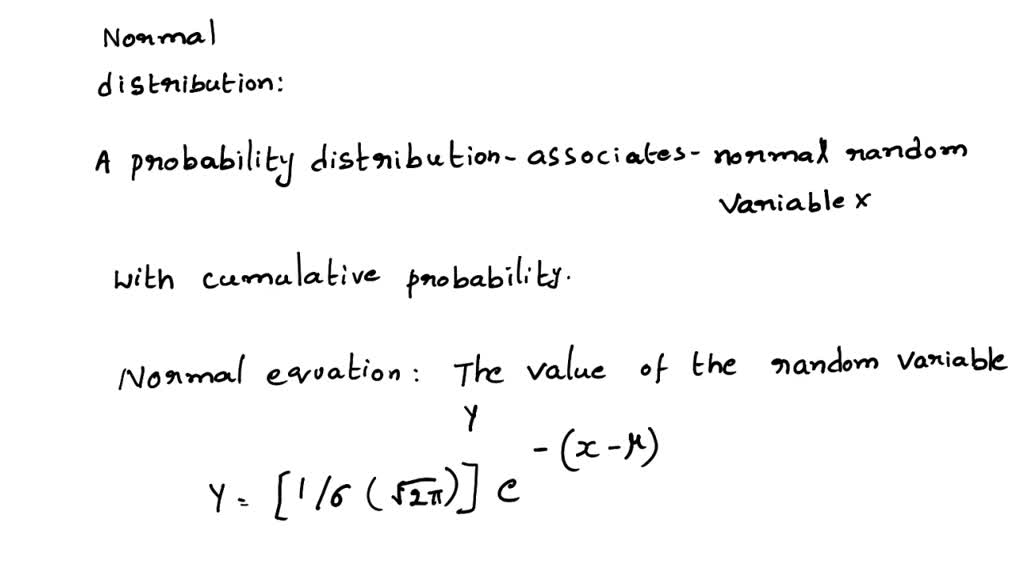 Normal
distribution:
A probability distribution - associates - normal random
variable x
with cumulative probability.
Normal equation: The value of the random variable
Y
Y = [1/σ (√2π)] e^-(x-μ)